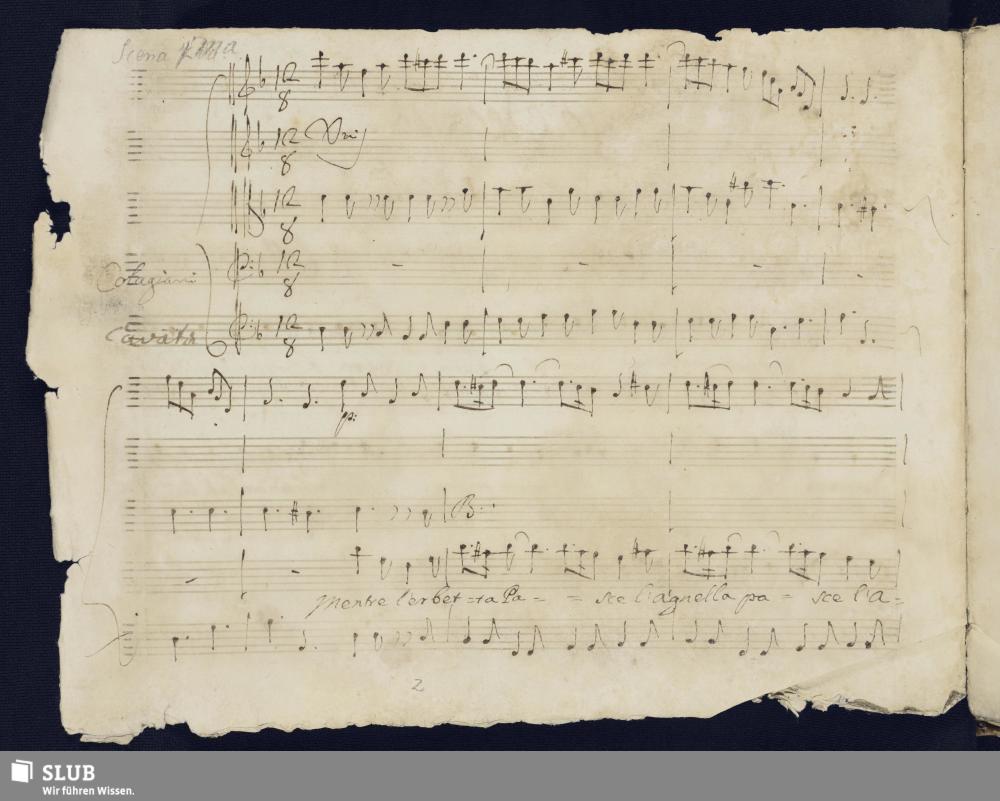 Scena
12 8
12 8 Vni
12 8
12 8
Cavata 12 8
p:
B.
Mentre l'erbet=ta Pa= = sce l'agnella pa= sce l'a=
2
SLUB
Wir führen Wissen.